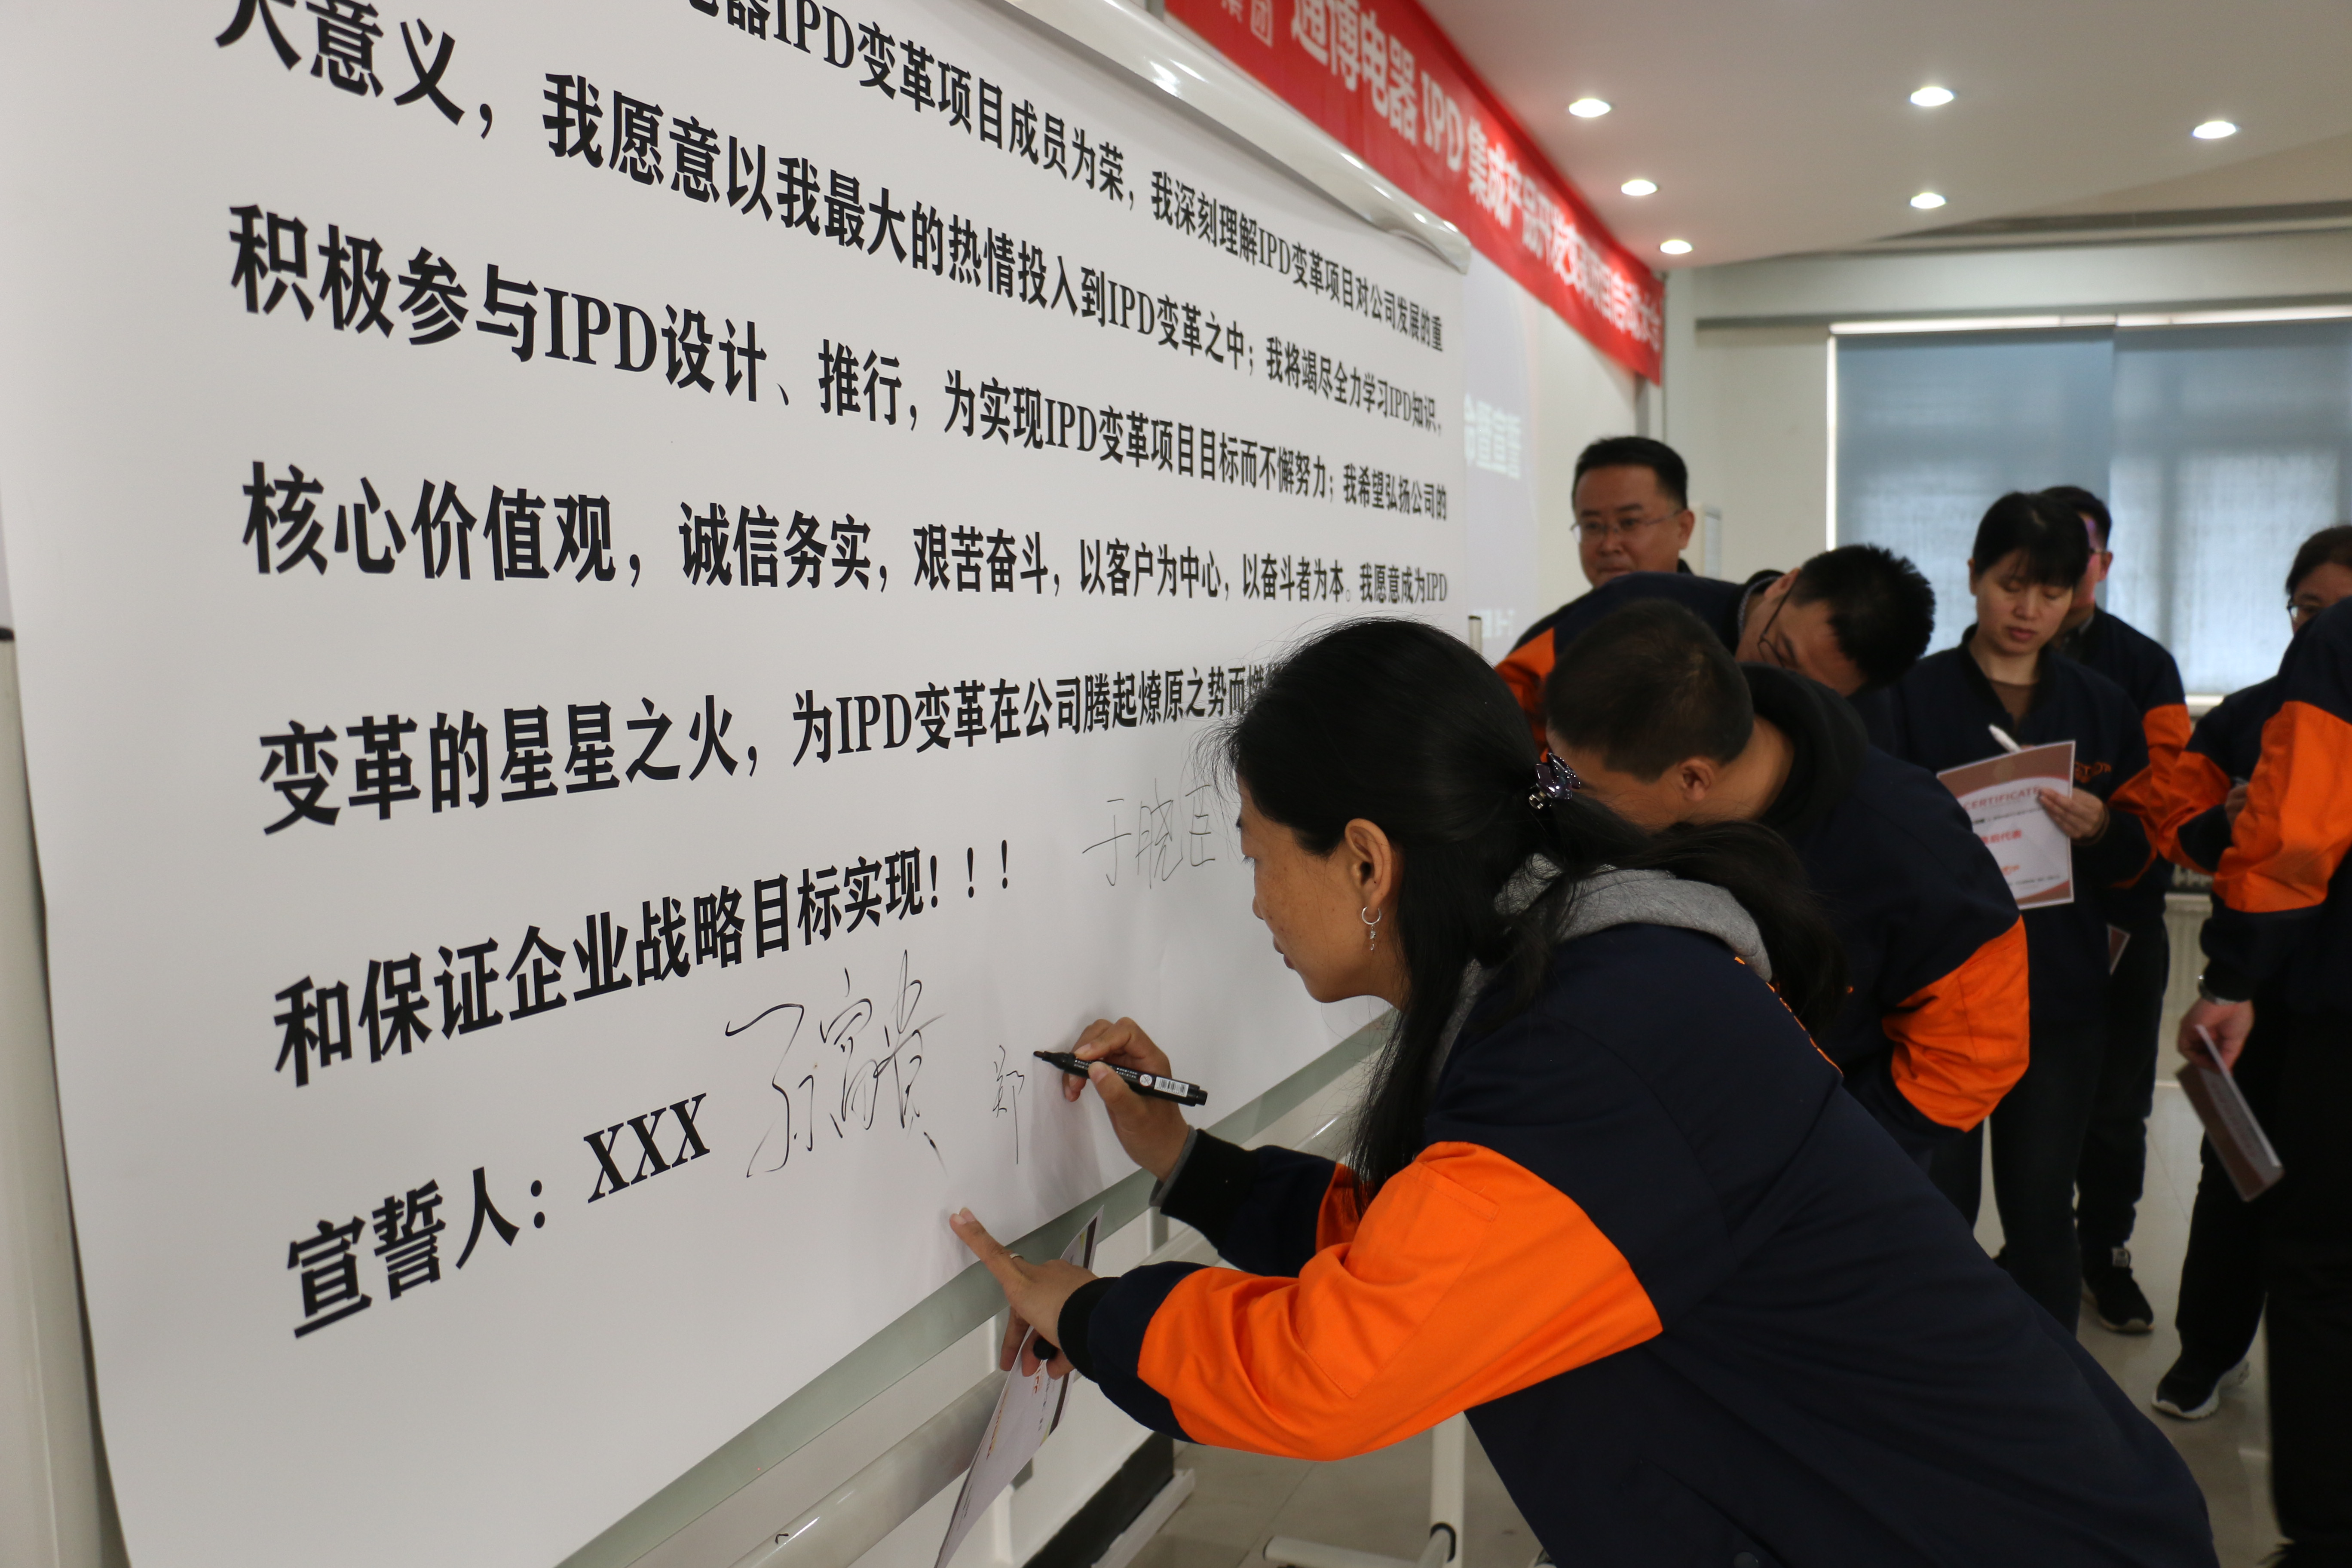 集团 通博电器 IPD 集成产品开发变革项目启动大会
电器IPD变革项目成员为荣，我深刻理解IPD变革项目对公司发展的重
大意义，我愿意以我最大的热情投入到IPD变革之中；我将竭尽全力学习IPD知识，
积极参与IPD设计、推行，为实现IPD变革项目目标而不懈努力；我希望弘扬公司的
核心价值观，诚信务实，艰苦奋斗，以客户为中心，以奋斗者为本。我愿意成为IPD
变革的星星之火，为IPD变革在公司腾起燎原之势而燃
和保证企业战略目标实现！！！
于晓
宣誓人：XXX 孙富贵 郑
宣誓
CERTIFICATE
代表